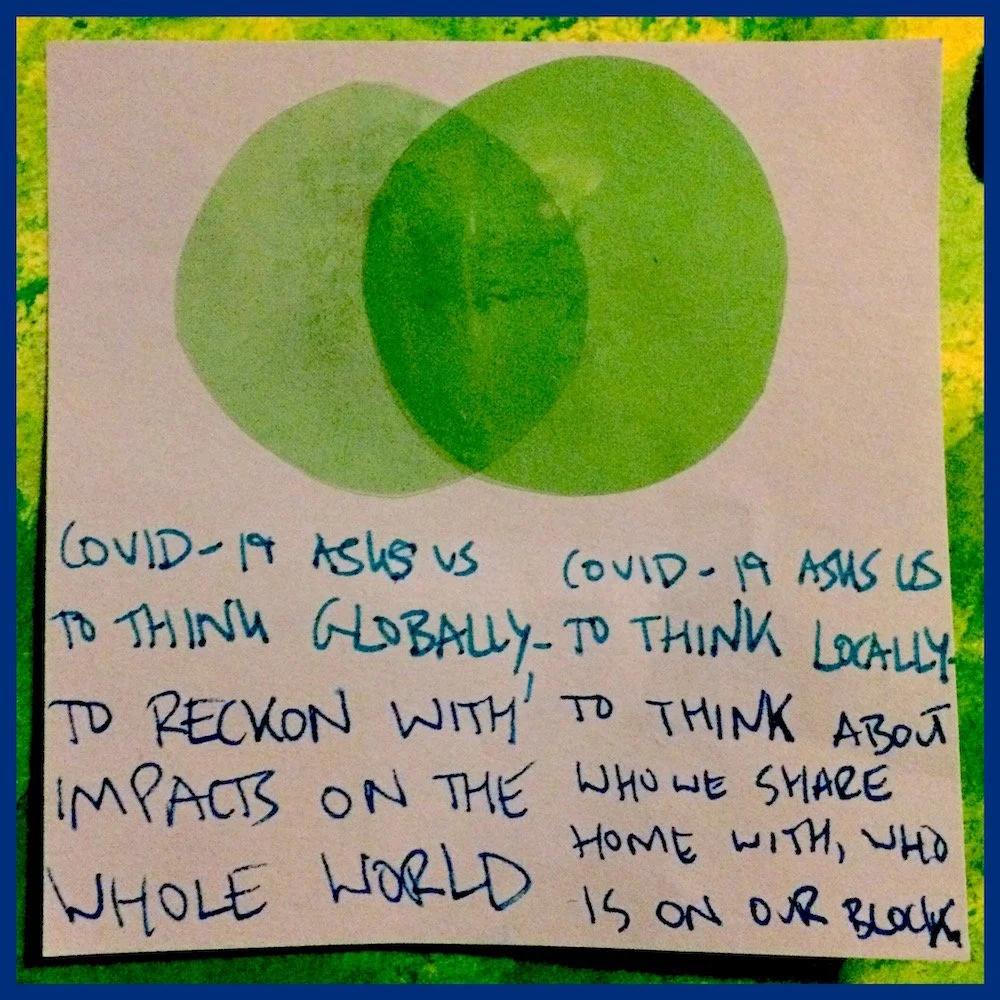 COVID-19 ASKS US
TO THINK GLOBALLY-
TO RECKON WITH
IMPACTS ON THE
WHOLE WORLD
COVID-19 ASKS US
TO THINK LOCALLY-
TO THINK ABOUT
WHO WE SHARE
HOME WITH, WHO
IS ON OUR BLOCK.